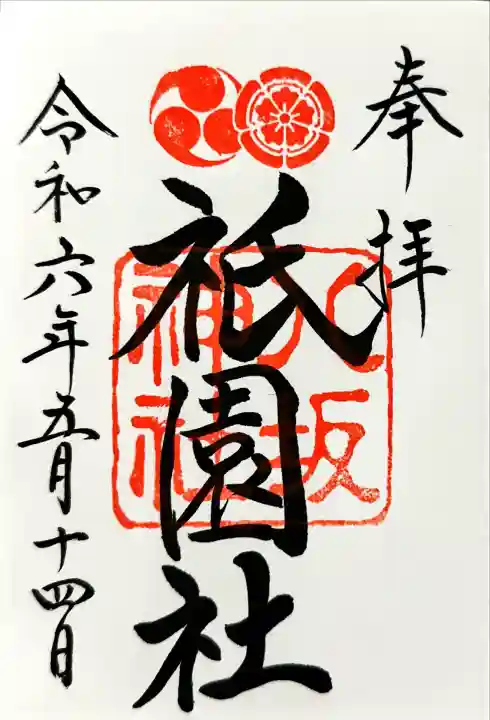 奉拝
祇園社
八坂神社
令和六年五月十四日